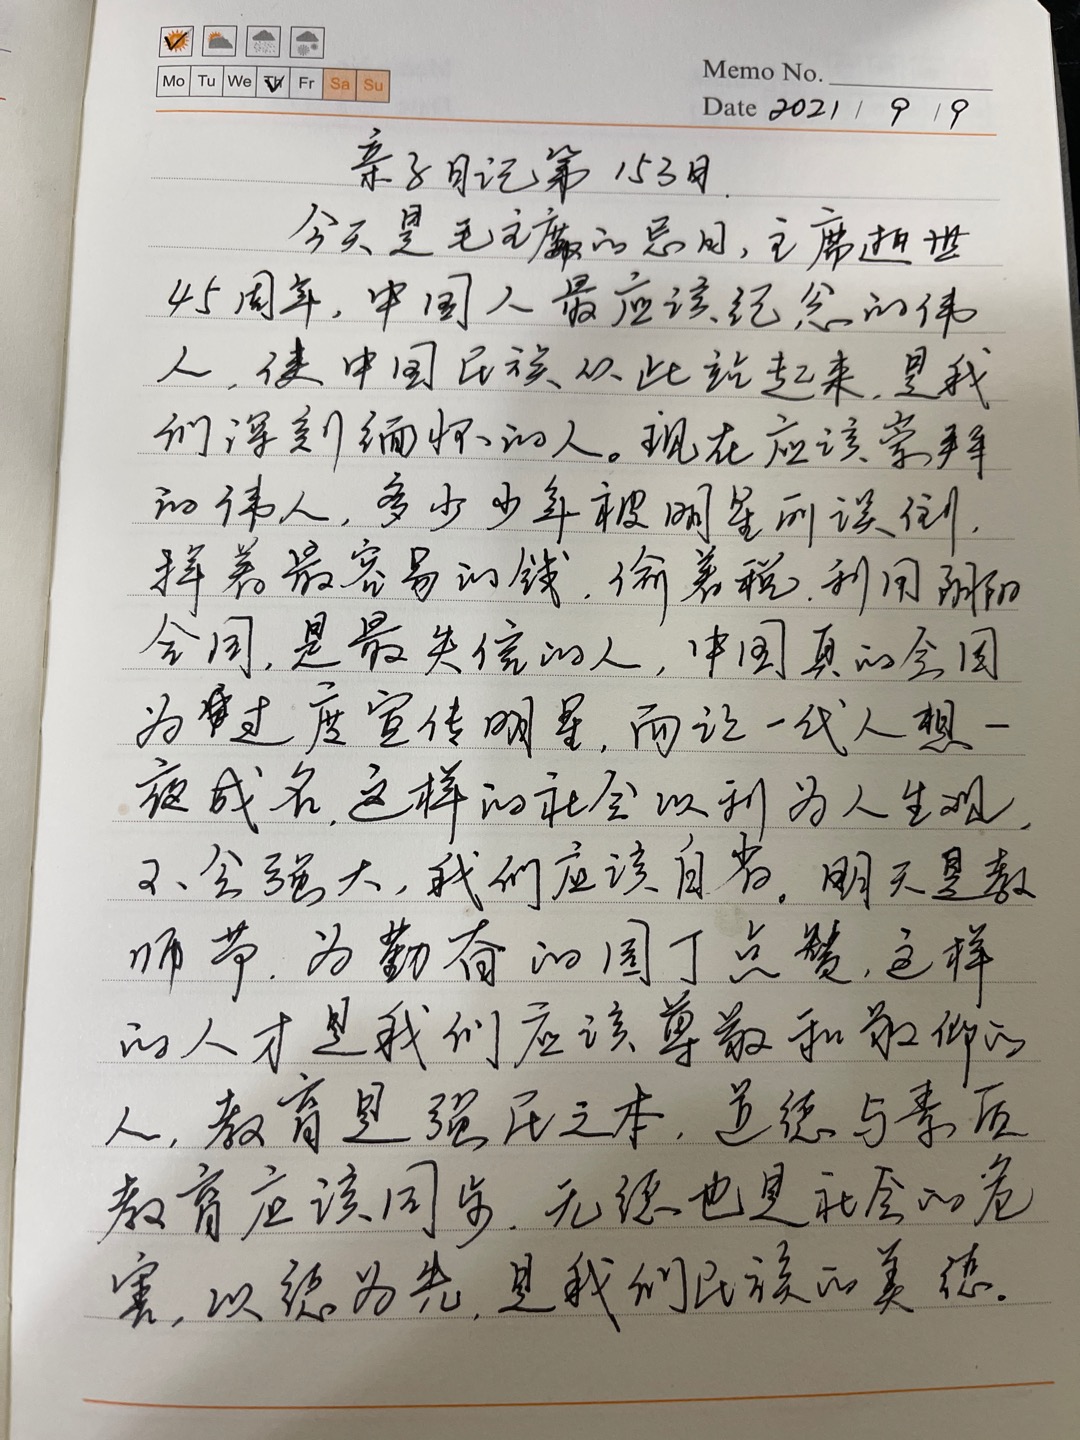 Mo Tu We Th Fr Sa Su
Memo No.
Date 2021 / 9 / 9
亲子日记第153日.
今天是毛主席的忌日,主席逝世
45周年,中国人最应该纪念的伟
人,使中国民族从此站起来,是我
们深刻缅怀的人。现在应该崇拜
的伟人,多少少年被明星所误倒,
挥着最容易的钱,偷着税,利用阴阳
合同,是最失信的人,中国真的会因
为过度宣传明星,而让一代人想一
夜成名,这样的社会以利为人生观,
不会强大,我们应该自省。明天是教
师节,为勤奋的园丁点赞,这样
的人才是我们应该尊敬和敬仰的
人,教育是强民之本,道德与素质
教育应该同步.无德也是社会的危
害,以德为先,是我们民族的美德.